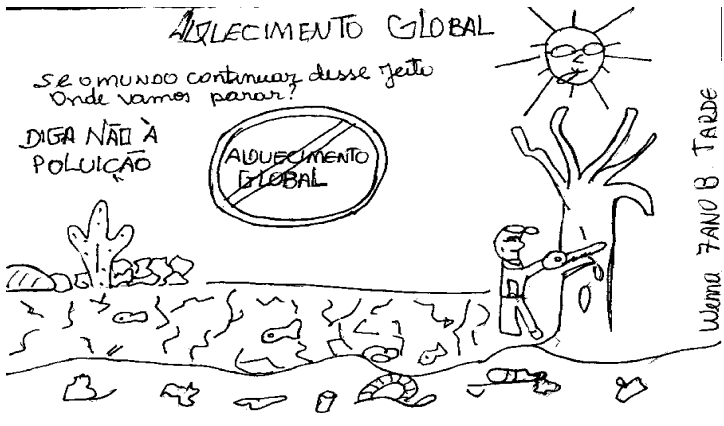 AQUECIMENTO GLOBAL
Se o mundo continuar desse jeito
Onde vamos parar?
DIGA NÃO À
POLUIÇÃO
AQUECIMENTO
GLOBAL
7 ANO B. TARDE